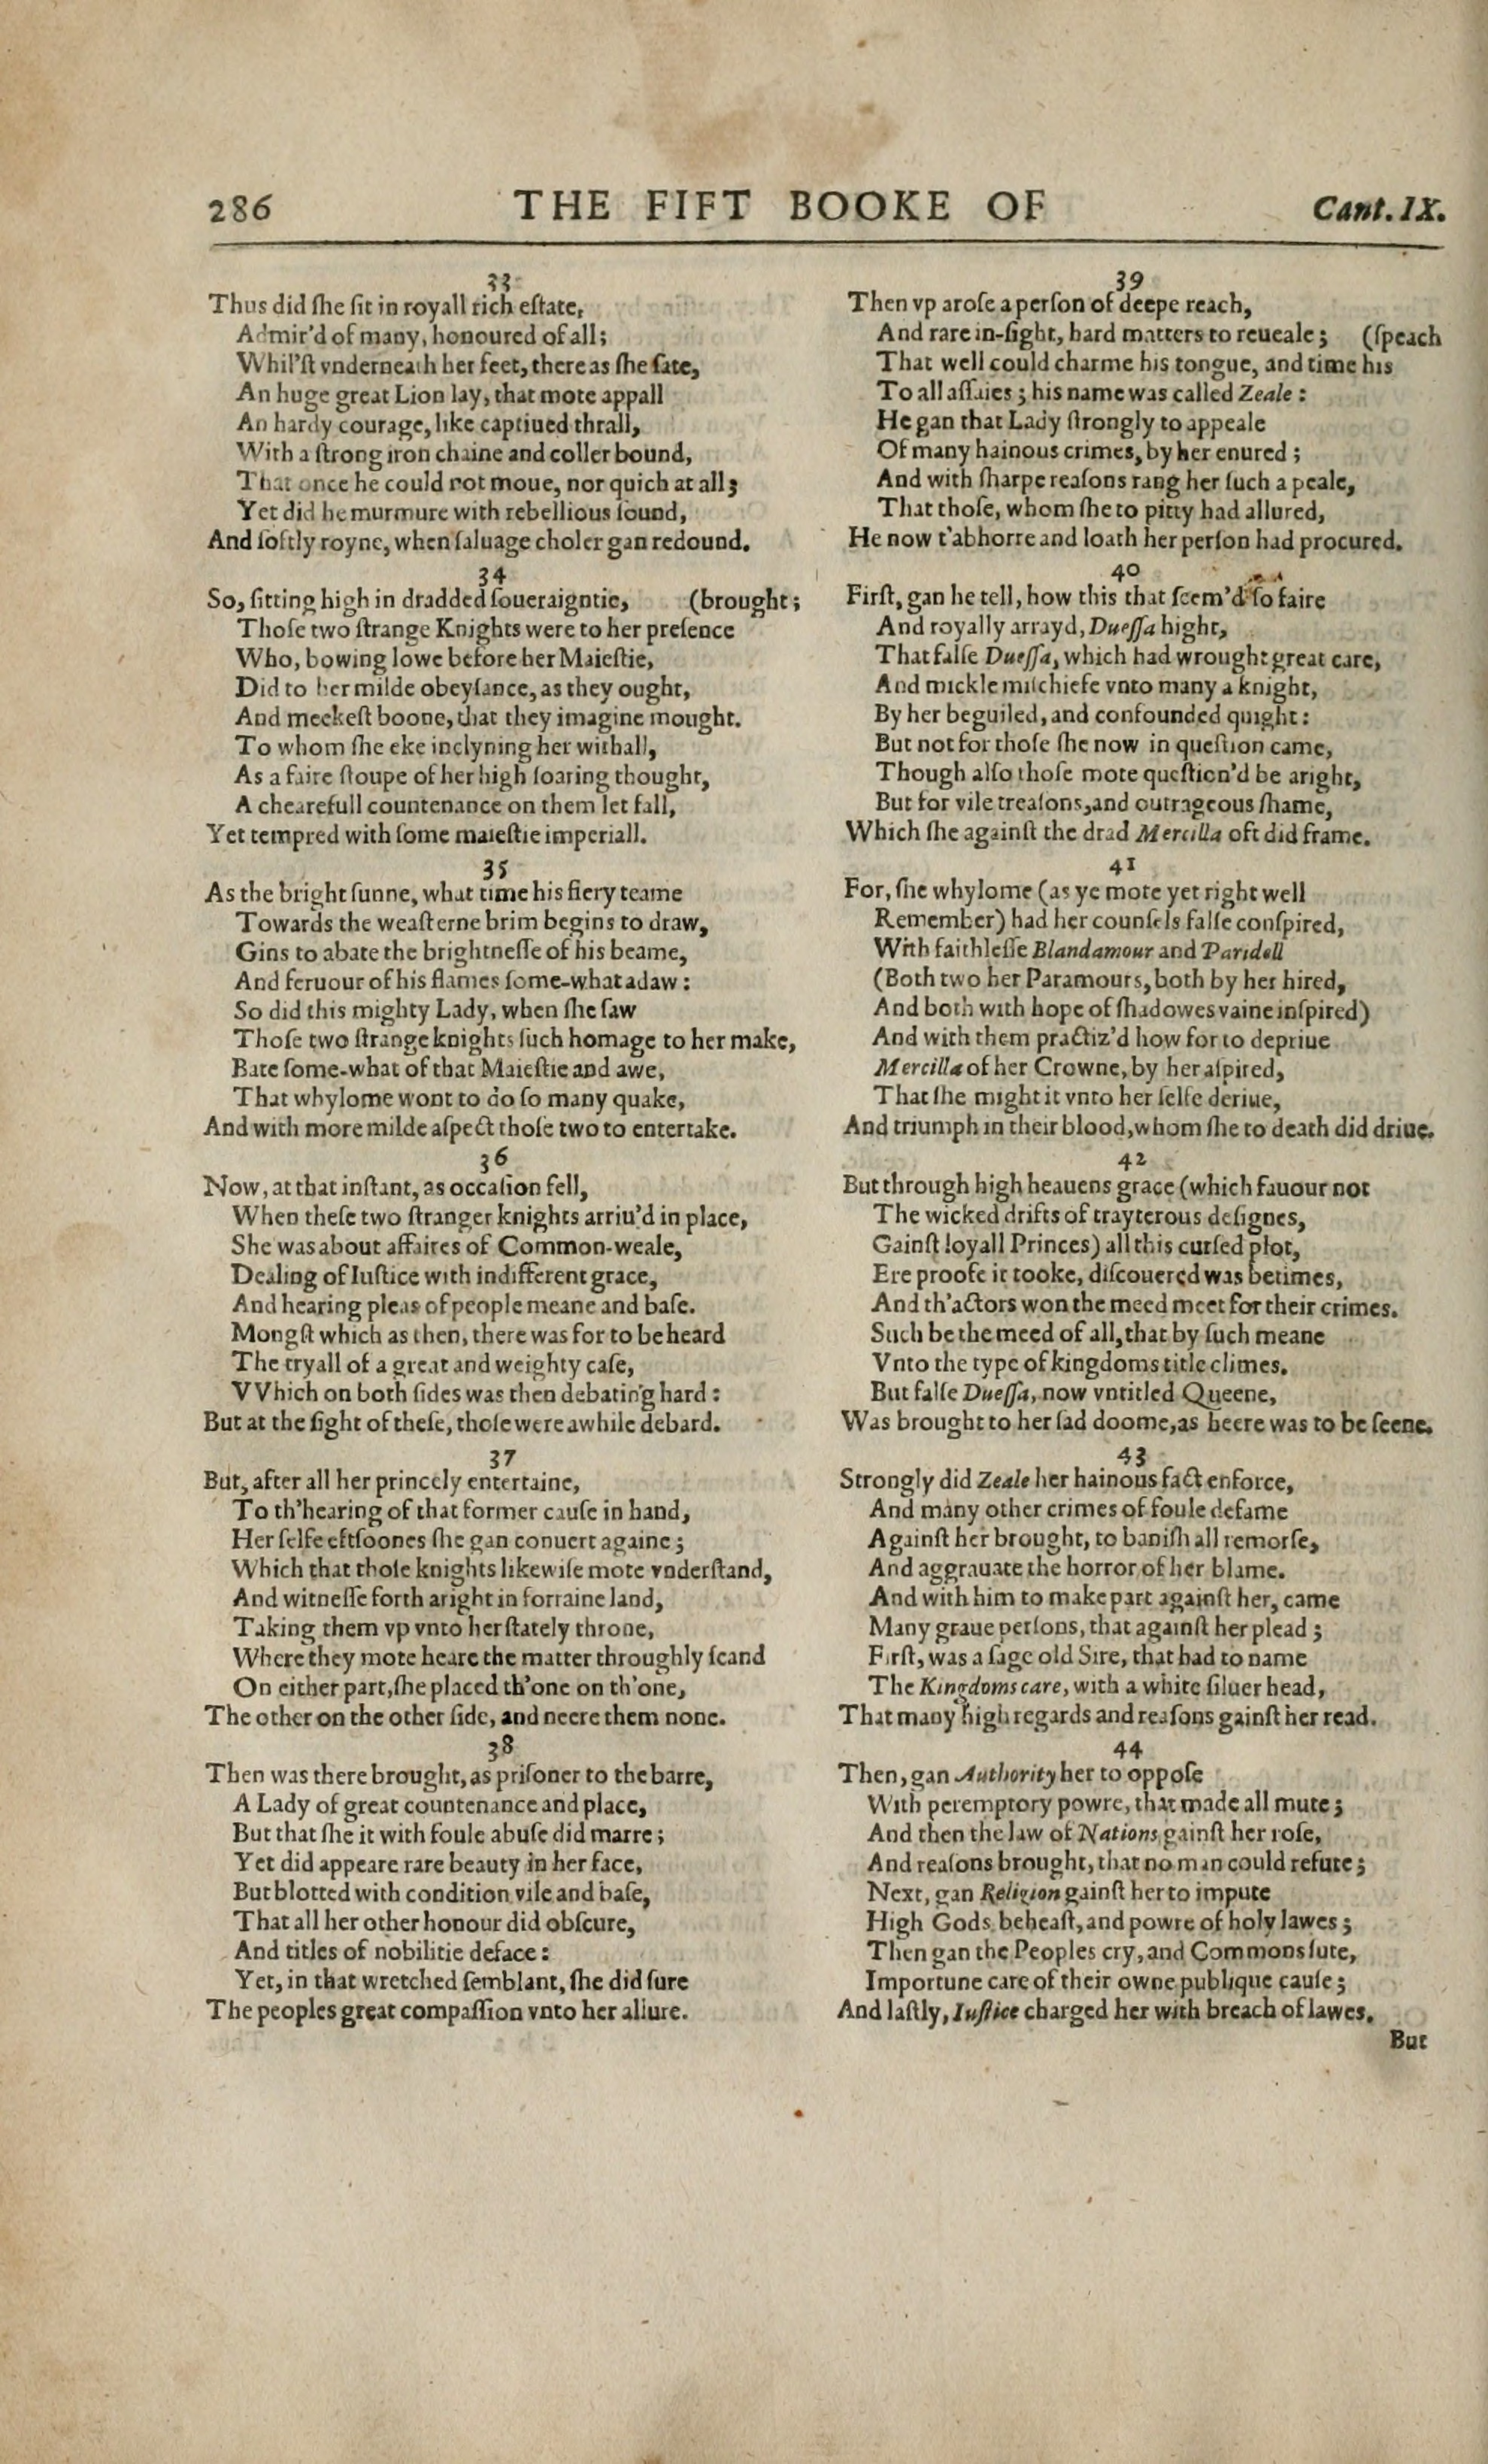 286 THE FIFT BOOKE OF Cant. IX.
33
Thus did ſhe ſit in royall rich eſtate,
Admir'd of many, honoured of all;
Whil'ſt vnderneath her feet, there as ſhe ſate,
An huge great Lion lay, that mote appall
An hardy courage, like captiued thrall,
With a ſtrong iron chaine and coller bound,
That once he could not moue, nor quich at all;
Yet did he murmure with rebellious ſound,
And ſoftly royne, when ſaluage choler gan redound.
34
So, ſitting high in dradded ſoueraigntie, (brought;
Thoſe two ſtrange Knights were to her preſence
Who, bowing lowe before her Maieſtie,
Did to her milde obeyſance, as they ought,
And meekeſt boone, that they imagine mought.
To whom ſhe eke inclyning her withall,
As a faire ſtoupe of her high ſoaring thought,
A chearefull countenance on them let fall,
Yet tempred with ſome maieſtie imperiall.
35
As the bright ſunne, what time his fiery teame
Towards the weaſterne brim begins to draw,
Gins to abate the brightneſſe of his beame,
And feruour of his flames ſome-what adaw:
So did this mighty Lady, when ſhe ſaw
Thoſe two ſtrange knights ſuch homage to her make,
Bate ſome-what of that Maieſtie and awe,
That whylome wont to do ſo many quake,
And with more milde aſpect thoſe two to entertake.
36
Now, at that inſtant, as occaſion fell,
When theſe two ſtranger knights arriu'd in place,
She was about affaires of Common-weale,
Dealing of Iuſtice with indifferent grace,
And hearing pleas of people meane and baſe.
Mongſt which as then, there was for to be heard
The tryall of a great and weighty caſe,
VVhich on both ſides was then debating hard:
But at the ſight of theſe, thoſe were awhile debard.
37
But, after all her princely entertaine,
To th'hearing of that former cauſe in hand,
Her ſelfe eftſoones ſhe gan conuert againe;
Which that thoſe knights likewiſe mote vnderſtand,
And witneſſe forth aright in forraine land,
Taking them vp vnto her ſtately throne,
Where they mote heare the matter throughly ſcand
On either part, ſhe placed th'one on th'one,
The other on the other ſide, and neere them none.
38
Then was there brought, as priſoner to the barre,
A Lady of great countenance and place,
But that ſhe it with foule abuſe did marre;
Yet did appeare rare beauty in her face,
But blotted with condition vile and baſe,
That all her other honour did obſcure,
And titles of nobilitie deface:
Yet, in that wretched ſemblant, ſhe did ſure
The peoples great compaſſion vnto her allure.
39
Then vp aroſe a perſon of deepe reach,
And rare in-ſight, hard matters to reueale; (ſpeach
That well could charme his tongue, and time his
To all aſſaies; his name was called Zeale:
He gan that Lady ſtrongly to appeale
Of many hainous crimes, by her enured;
And with ſharpe reaſons rang her ſuch a peale,
That thoſe, whom ſhe to pitty had allured,
He now t'abhorre and loath her perſon had procured.
40
Firſt, gan he tell, how this that ſeem'd ſo faire
And royally arrayd, Dueſſa hight,
That falſe Dueſſa, which had wrought great care,
And mickle miſchiefe vnto many a knight,
By her beguiled, and confounded quight:
But not for thoſe ſhe now in queſtion came,
Though alſo thoſe mote queſtion'd be aright,
But for vile treaſons, and outrageous ſhame,
Which ſhe againſt the drad Mercilla oft did frame.
41
For, ſhe whylome (as ye mote yet right well
Remember) had her counſels falſe conſpired,
With faithleſſe Blandamour and Paridell
(Both two her Paramours, both by her hired,
And both with hope of ſhadowes vaine inſpired)
And with them practiz'd how for to depriue
Mercilla of her Crowne, by her aſpired,
That ſhe might it vnto her ſelfe deriue,
And triumph in their blood, whom ſhe to death did driue.
42
But through high heauens grace (which fauour not
The wicked drifts of trayterous deſignes,
Gainſt loyall Princes) all this curſed plot,
Ere proofe it tooke, diſcouered was betimes,
And th'actors won the meed meet for their crimes.
Such be the meed of all, that by ſuch meane
Vnto the type of kingdoms title climes.
But falſe Dueſſa, now vntitled Queene,
Was brought to her ſad doome, as heere was to be ſeene.
43
Strongly did Zeale her hainous fact enforce,
And many other crimes of foule defame
Againſt her brought, to baniſh all remorſe,
And aggrauate the horror of her blame.
And with him to make part againſt her, came
Many graue perſons, that againſt her plead;
Firſt, was a ſage old Sire, that had to name
The Kingdoms care, with a white ſiluer head,
That many high regards and reaſons gainſt her read.
44
Then, gan Authority her to oppoſe
With peremptory powre, that made all mute;
And then the law of Nations gainſt her roſe,
And reaſons brought, that no man could refute;
Next, gan Religion gainſt her to impute
High Gods beheaſt, and powre of holy lawes;
Then gan the Peoples cry, and Commons ſute,
Importune care of their owne publique cauſe;
And laſtly, Iuſtice charged her with breach of lawes.
But